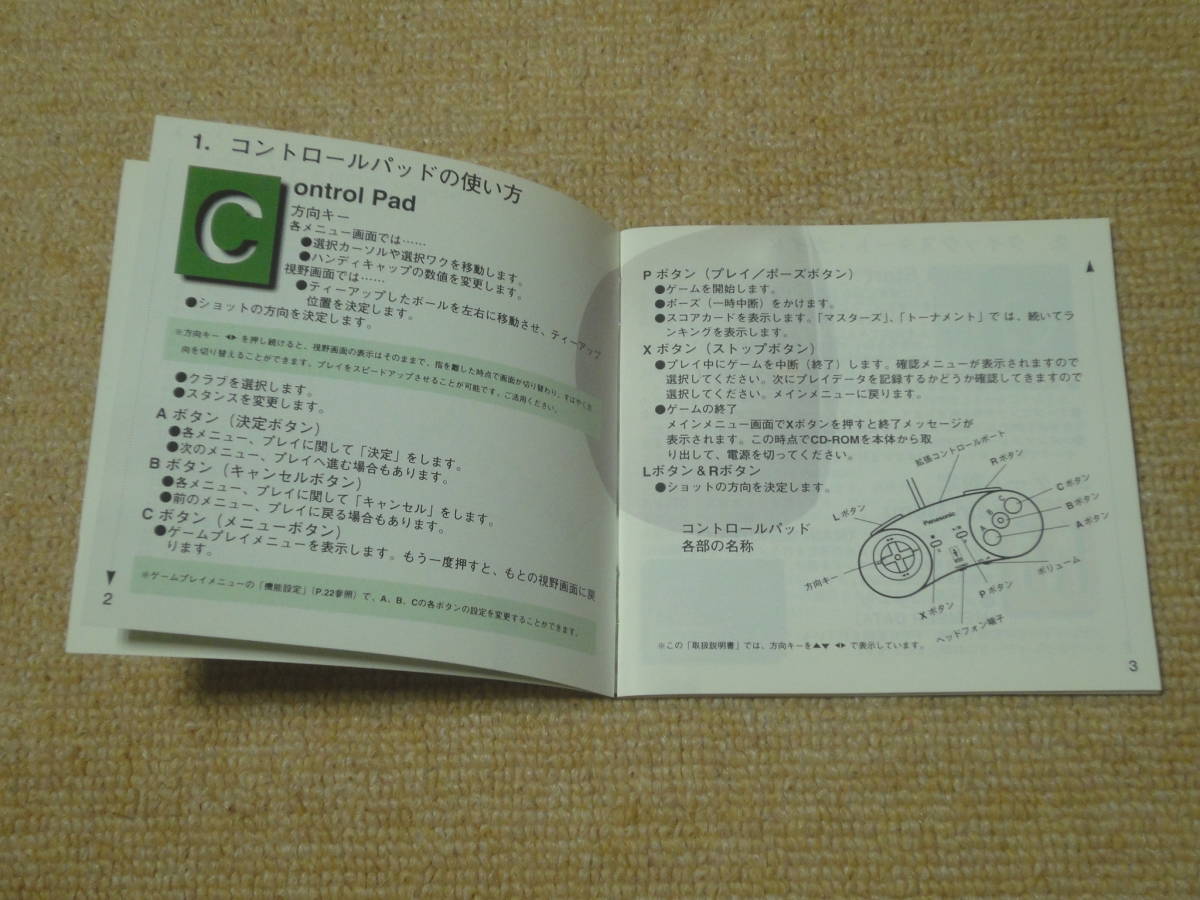 1. コントロールパッドの使い方
C
ontrol Pad
方向キー
各メニュー画面では……
●選択カーソルや選択ワクを移動します。
●ハンディキャップの数値を変更します。
視野画面では……
●ティーアップしたボールを左右に移動させ、ティーアップ
位置を決定します。
●ショットの方向を決定します。
※方向キー ◀▶ を押し続けると、視野画面の表示はそのままで、指を離した時点で画面が切り替わり、すばやく方
向を切り替えることができます。プレイをスピードアップさせることが可能です。ご活用ください。
●クラブを選択します。
●スタンスを変更します。
A ボタン（決定ボタン）
●各メニュー、プレイに関して「決定」をします。
●次のメニュー、プレイへ進む場合もあります。
B ボタン（キャンセルボタン）
●各メニュー、プレイに関して「キャンセル」をします。
●前のメニュー、プレイに戻る場合もあります。
C ボタン（メニューボタン）
●ゲームプレイメニューを表示します。もう一度押すと、もとの視野画面に戻
ります。
※ゲームプレイメニューの「機能設定」(P.22参照) で、A、B、Cの各ボタンの設定を変更することができます。
▼
2
▲
P ボタン（プレイ／ポーズボタン）
●ゲームを開始します。
●ポーズ（一時中断）をかけます。
●スコアカードを表示します。「マスターズ」、「トーナメント」では、続いてラ
ンキングを表示します。
X ボタン（ストップボタン）
●プレイ中にゲームを中断（終了）します。確認メニューが表示されますので
選択してください。次にプレイデータを記録するかどうか確認してきますので
選択してください。メインメニューに戻ります。
●ゲームの終了
メインメニュー画面でXボタンを押すと終了メッセージが
表示されます。この時点でCD-ROMを本体から取
り出して、電源を切ってください。
Lボタン＆Rボタン
●ショットの方向を決定します。
コントロールパッド
各部の名称
拡張コントロールポート
Rボタン
Lボタン
Cボタン
Bボタン
Aボタン
Panasonic
C
B
A
方向キー
ボリューム
Pボタン
Xボタン
ヘッドフォン端子
※この「取扱説明書」では、方向キーを▲▼ ◀▶ で表示しています。
3